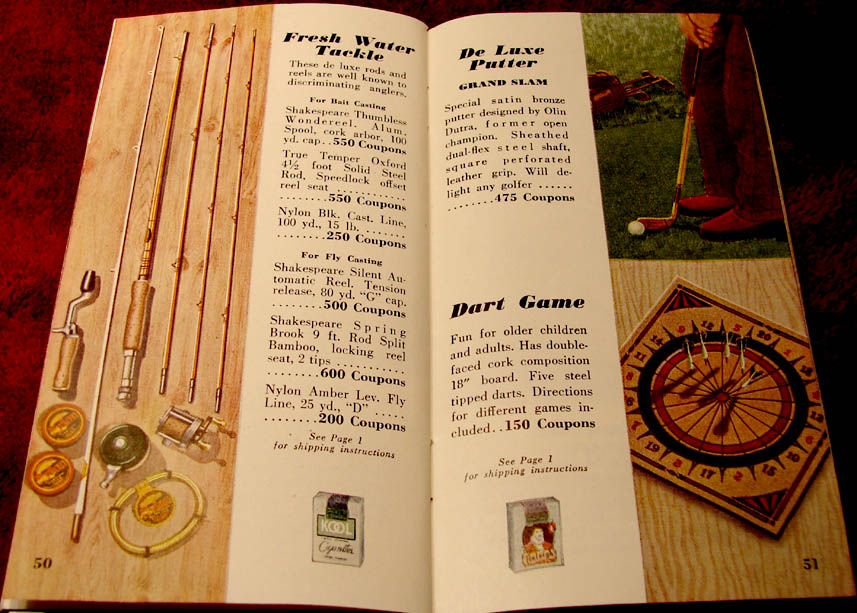 Fresh Water
Tackle
These de luxe rods and
reels are well known to
discriminating anglers.
For Bait Casting
Shakespeare Thumbless
Wondereel. Alum.
Spool, cork arbor, 100
yd. cap..550 Coupons
True Temper Oxford
4½ foot Solid Steel
Rod. Speedlock offset
reel seat ............
........550 Coupons
Nylon Blk. Cast. Line,
100 yd., 15 lb. .......
........250 Coupons
For Fly Casting
Shakespeare Silent Au-
tomatic Reel. Tension
release, 80 yd. "G" cap.
........500 Coupons
Shakespeare Spring
Brook 9 ft. Rod Split
Bamboo, locking reel
seat, 2 tips ..........
........600 Coupons
Nylon Amber Lev. Fly
Line, 25 yd., "D" .....
........200 Coupons
See Page 1
for shipping instructions
KOOL
Cigarettes
50
De Luxe
Putter
GRAND SLAM
Special satin bronze
putter designed by Olin
Dutra, former open
champion. Sheathed
dual-flex steel shaft,
square perforated
leather grip. Will de-
light any golfer ......
........475 Coupons
Dart Game
Fun for older children
and adults. Has double-
faced cork composition
18" board. Five steel
tipped darts. Directions
for different games in-
cluded..150 Coupons
See Page 1
for shipping instructions
Raleigh
51